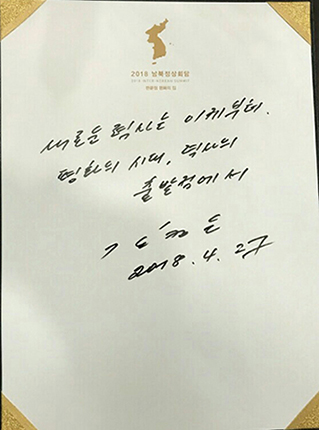 2018 남북정상회담
2018 INTER-KOREAN SUMMIT
새로운 력사는 이제부터.
평화의 시대, 력사의
출발점에서
김정은
2018. 4. 27